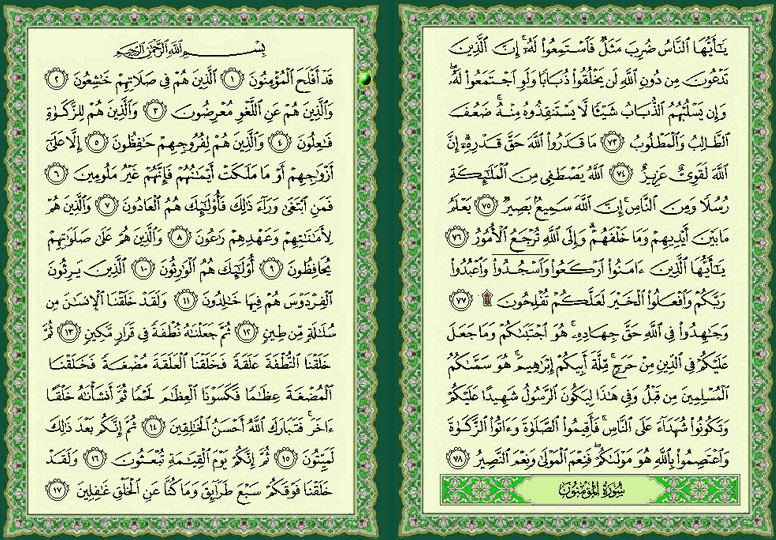 يَـٰٓأَيُّهَا ٱلنَّاسُ ضُرِبَ مَثَلٌ فَٱسْتَمِعُوا۟ لَهُۥٓ ۚ إِنَّ ٱلَّذِينَ
تَدْعُونَ مِن دُونِ ٱللَّهِ لَن يَخْلُقُوا۟ ذُبَابًا وَلَوِ ٱجْتَمَعُوا۟ لَهُۥ ۖ
وَإِن يَسْلُبْهُمُ ٱلذُّبَابُ شَيْـًٔا لَّا يَسْتَنقِذُوهُ مِنْهُ ۚ ضَعُفَ
ٱلطَّالِبُ وَٱلْمَطْلُوبُ ﴿٧٣﴾ مَا قَدَرُوا۟ ٱللَّهَ حَقَّ قَدْرِهِۦٓ ۗ إِنَّ
ٱللَّهَ لَقَوِىٌّ عَزِيزٌ ﴿٧٤﴾ ٱللَّهُ يَصْطَفِى مِنَ ٱلْمَلَـٰٓئِكَةِ
رُسُلًا وَمِنَ ٱلنَّاسِ ۚ إِنَّ ٱللَّهَ سَمِيعٌۢ بَصِيرٌ ﴿٧٥﴾ يَعْلَمُ
مَا بَيْنَ أَيْدِيهِمْ وَمَا خَلْفَهُمْ ۗ وَإِلَى ٱللَّهِ تُرْجَعُ ٱلْأُمُورُ ﴿٧٦﴾
يَـٰٓأَيُّهَا ٱلَّذِينَ ءَامَنُوا۟ ٱرْكَعُوا۟ وَٱسْجُدُوا۟ وَٱعْبُدُوا۟
رَبَّكُمْ وَٱفْعَلُوا۟ ٱلْخَيْرَ لَعَلَّكُمْ تُفْلِحُونَ ۩ ﴿٧٧﴾
وَجَـٰهِدُوا۟ فِى ٱللَّهِ حَقَّ جِهَادِهِۦ ۚ هُوَ ٱجْتَبَىٰكُمْ وَمَا جَعَلَ
عَلَيْكُمْ فِى ٱلدِّينِ مِنْ حَرَجٍ ۚ مِّلَّةَ أَبِيكُمْ إِبْرَٰهِيمَ ۚ هُوَ سَمَّىٰكُمُ
ٱلْمُسْلِمِينَ مِن قَبْلُ وَفِى هَـٰذَا لِيَكُونَ ٱلرَّسُولُ شَهِيدًا عَلَيْكُمْ
وَتَكُونُوا۟ شُهَدَآءَ عَلَى ٱلنَّاسِ ۚ فَأَقِيمُوا۟ ٱلصَّلَوٰةَ وَءَاتُوا۟ ٱلزَّكَوٰةَ
وَٱعْتَصِمُوا۟ بِٱللَّهِ هُوَ مَوْلَىٰكُمْ ۖ فَنِعْمَ ٱلْمَوْلَىٰ وَنِعْمَ ٱلنَّصِيرُ ﴿٧٨﴾
سُورَةُ المُؤْمِنُونَ
بِسْمِ ٱللَّهِ ٱلرَّحْمَـٰنِ ٱلرَّحِيمِ
قَدْ أَفْلَحَ ٱلْمُؤْمِنُونَ ﴿١﴾ ٱلَّذِينَ هُمْ فِى صَلَاتِهِمْ خَـٰشِعُونَ ﴿٢﴾
وَٱلَّذِينَ هُمْ عَنِ ٱللَّغْوِ مُعْرِضُونَ ﴿٣﴾ وَٱلَّذِينَ هُمْ لِلزَّكَوٰةِ
فَـٰعِلُونَ ﴿٤﴾ وَٱلَّذِينَ هُمْ لِفُرُوجِهِمْ حَـٰفِظُونَ ﴿٥﴾ إِلَّا عَلَىٰٓ
أَزْوَٰجِهِمْ أَوْ مَا مَلَكَتْ أَيْمَـٰنُهُمْ فَإِنَّهُمْ غَيْرُ مَلُومِينَ ﴿٦﴾
فَمَنِ ٱبْتَغَىٰ وَرَآءَ ذَٰلِكَ فَأُو۟لَـٰٓئِكَ هُمُ ٱلْعَادُونَ ﴿٧﴾ وَٱلَّذِينَ هُمْ
لِأَمَـٰنَـٰتِهِمْ وَعَهْدِهِمْ رَٰعُونَ ﴿٨﴾ وَٱلَّذِينَ هُمْ عَلَىٰ صَلَوَٰتِهِمْ
يُحَافِظُونَ ﴿٩﴾ أُو۟لَـٰٓئِكَ هُمُ ٱلْوَٰرِثُونَ ﴿١٠﴾ ٱلَّذِينَ يَرِثُونَ
ٱلْفِرْدَوْسَ هُمْ فِيهَا خَـٰلِدُونَ ﴿١١﴾ وَلَقَدْ خَلَقْنَا ٱلْإِنسَـٰنَ مِن
سُلَـٰلَةٍ مِّن طِينٍ ﴿١٢﴾ ثُمَّ جَعَلْنَـٰهُ نُطْفَةً فِى قَرَارٍ مَّكِينٍ ﴿١٣﴾ ثُمَّ
خَلَقْنَا ٱلنُّطْفَةَ عَلَقَةً فَخَلَقْنَا ٱلْعَلَقَةَ مُضْغَةً فَخَلَقْنَا
ٱلْمُضْغَةَ عِظَـٰمًا فَكَسَوْنَا ٱلْعِظَـٰمَ لَحْمًا ثُمَّ أَنشَأْنَـٰهُ خَلْقًا
ءَاخَرَ ۚ فَتَبَارَكَ ٱللَّهُ أَحْسَنُ ٱلْخَـٰلِقِينَ ﴿١٤﴾ ثُمَّ إِنَّكُم بَعْدَ ذَٰلِكَ
لَمَيِّتُونَ ﴿١٥﴾ ثُمَّ إِنَّكُمْ يَوْمَ ٱلْقِيَـٰمَةِ تُبْعَثُونَ ﴿١٦﴾ وَلَقَدْ
خَلَقْنَا فَوْقَكُمْ سَبْعَ طَرَآئِقَ وَمَا كُنَّا عَنِ ٱلْخَلْقِ غَـٰفِلِينَ ﴿١٧﴾